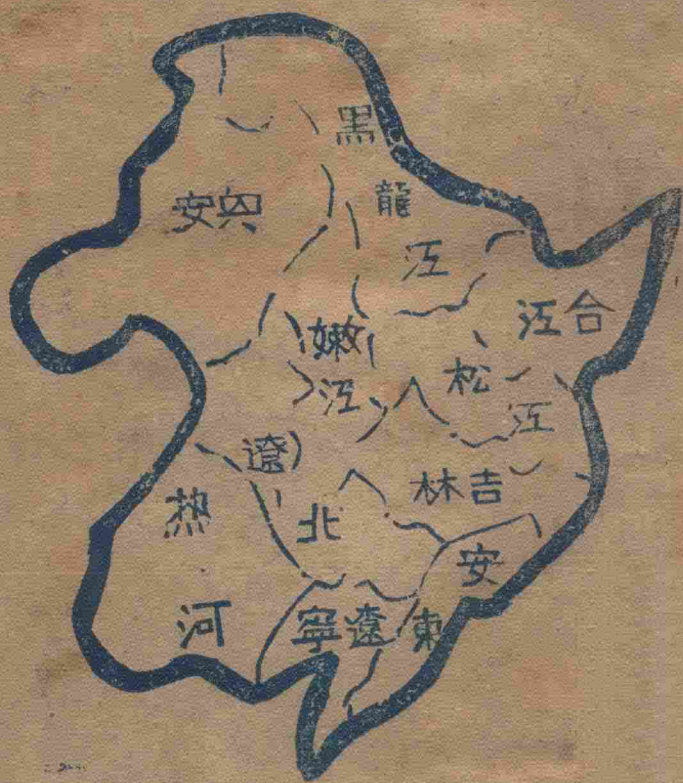 黑龍江
安兴
嫩江
江合
松江
遼北
林吉
热河
安東
寧遼